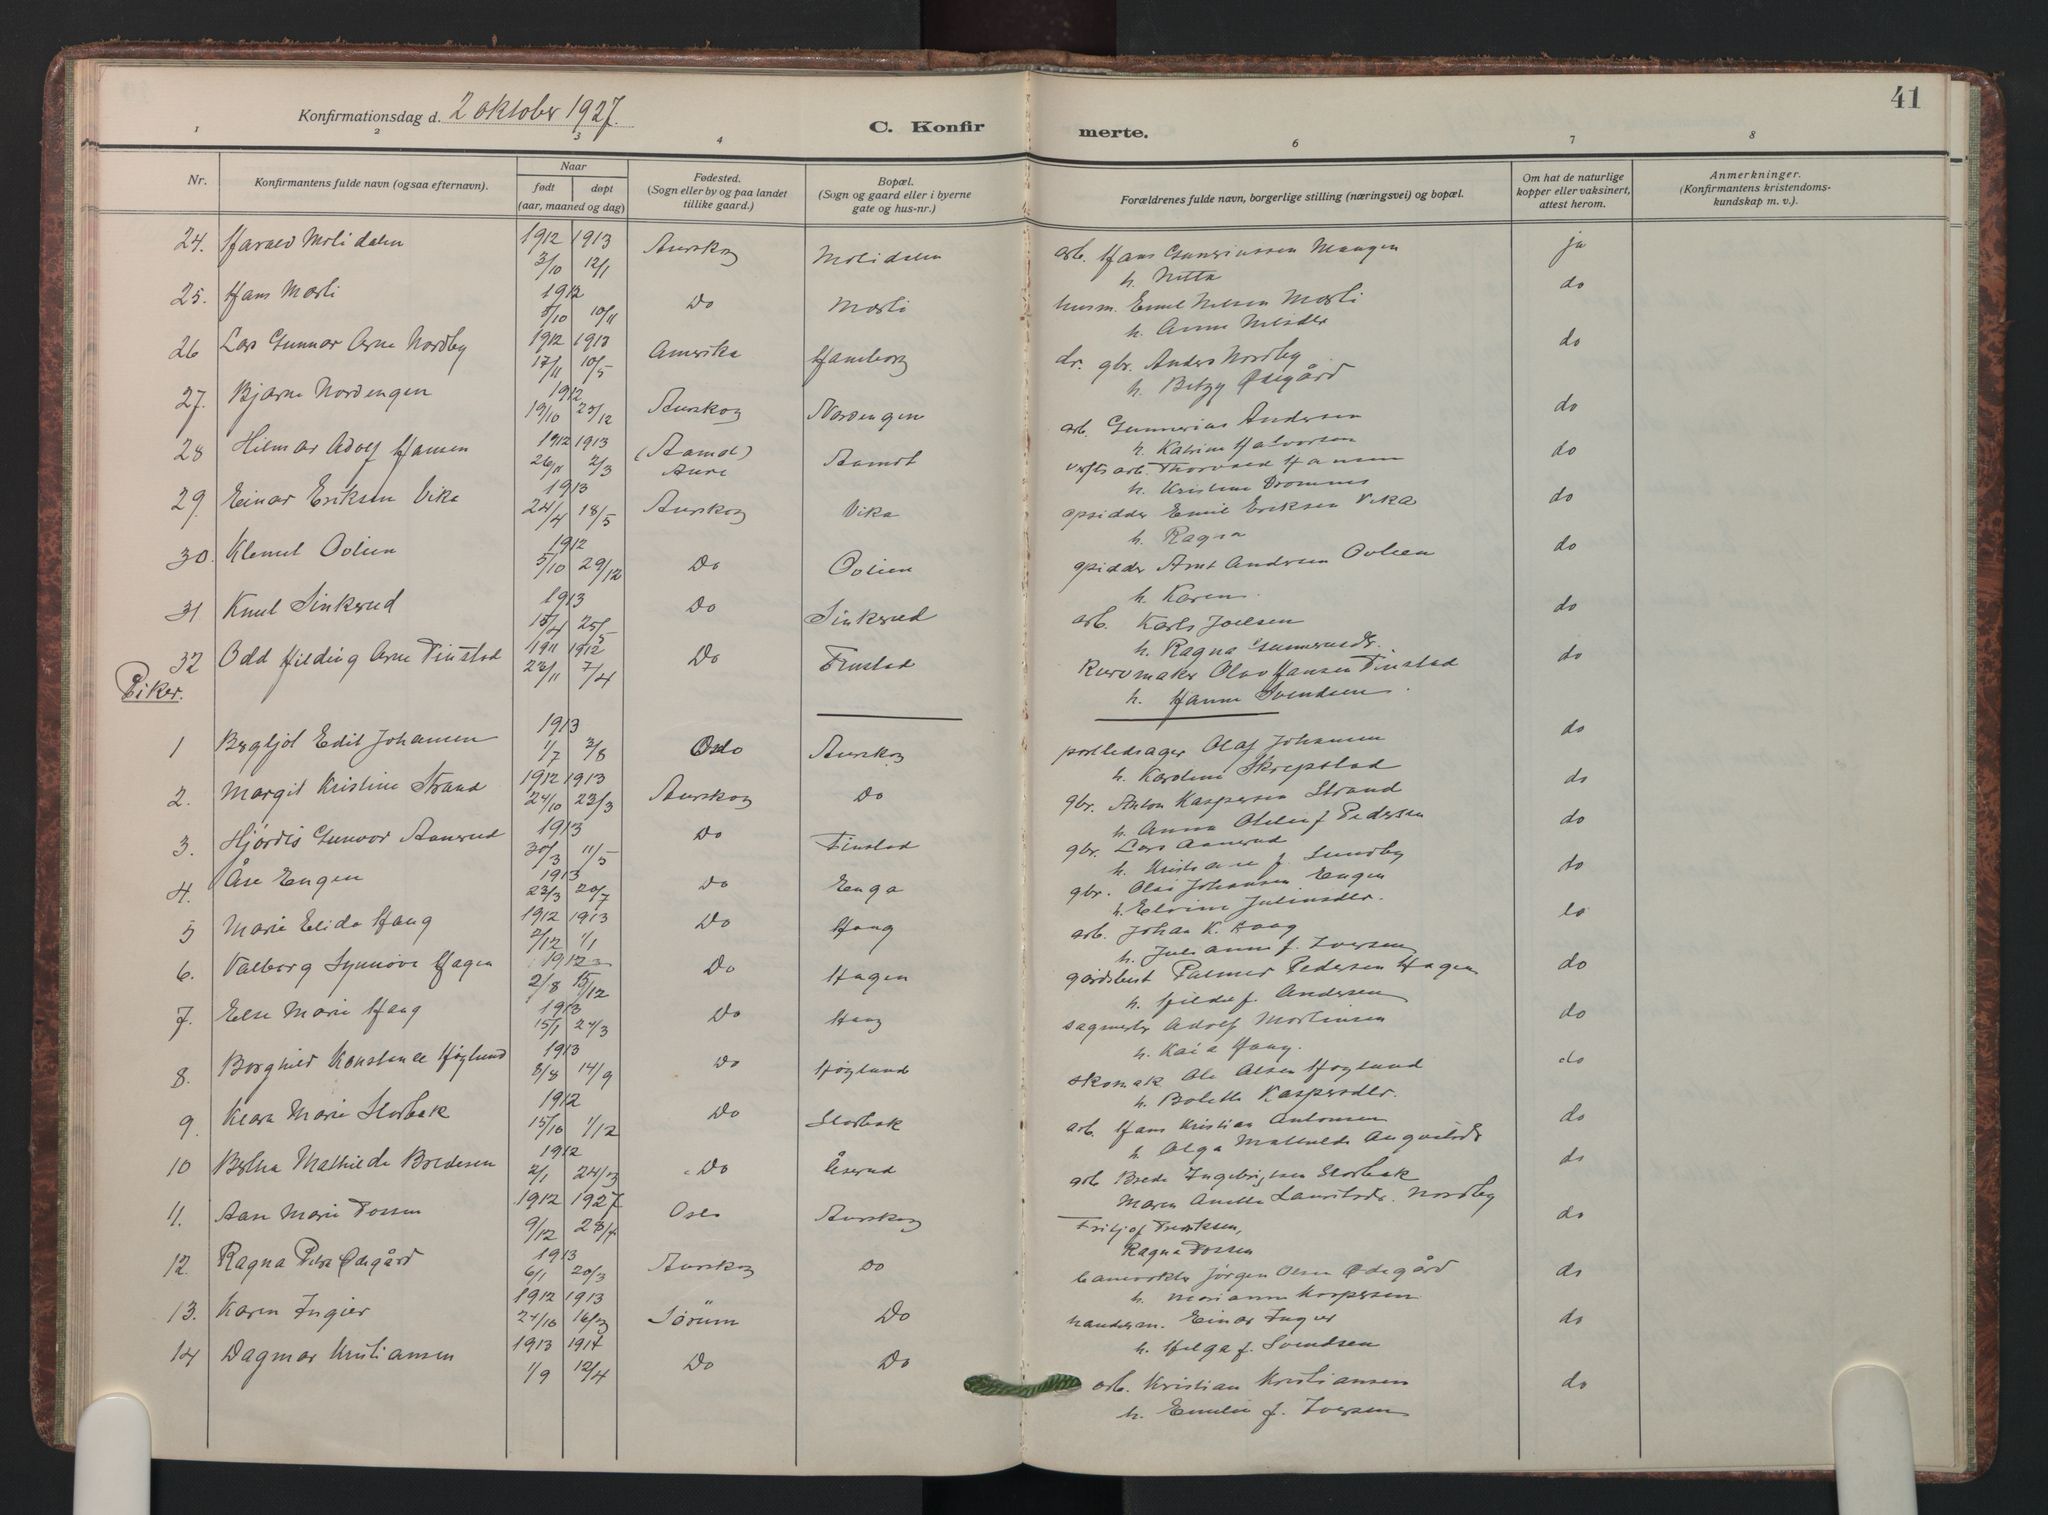 41
Konfirmationsdag d. 2 oktober 1927.
C. Konfir merte.
1 2 3 4 5 6 7 8
Nr. Konfirmantens fulde navn (ogsaa efternavn). Naar født døpt (aar, maaned og dag) Fødested. (Sogn eller by og paa landet tillike gaard.) Bopæl. (Sogn og gaard eller i byerne gate og hus-nr.) Forældrenes fulde navn, borgerlige stilling (næringsvei) og bopæl. Om hat de naturlige kopper eller vaksinert, attest herom. Anmerkninger. (Konfirmantens kristendoms-kundskap m. v.).
24. Harald Molidalen 1912 3/10 1913 12/1 Aurskog Molidalen arb. Hans Guneriussen Mangen ja
h. Nitta
25. Hans Mosli 1912 5/10 10/11 Do Mosli husm. Emil Nilsen Mosli do
h. Anne Nilsdtr
26 Lars Gunnar Arne Nordby 1912 17/11 1913 10/5 Amerika Hamborg dr. gbr. Anders Nordby do
h. Betzy Ødegård
27. Bjarne Nordengen 1912 19/10 23/12 Aurskog Nordengen arb. Gunnerius Andersen do
h. Katrine Halvorsen
28 Hilmar Adolf Hansen 1912 26/11 1913 2/3 (Aamot) Aure Aamot verfts arb. Thorvald Hansen do
h. Kristine Drommes
29. Einar Eriksen Vika 1913 24/4 18/5 Aurskog Vika opsidder Emil Eriksen Vika do
h. Ragna
30. Klemet Ovlien 1912 5/10 29/12 Do Ovlien opsidder Arnt Andersen Ovlien do
h. Karen
31 Knut Sinkerud 1913 15/4 25/5 Do Sinkerud arb. Karls Joelsen do
h. Ragna Gunerusdr.
32 Odd Hilding Arne Finstad 1911 23/11 1912 7/4 Do Finstad Kurvmaker Olav Hansen Finstad do
h. Hanne Svendsen.
Piker.
1 Bergljot Edit Johansen 1913 1/7 3/8 Oslo Aurskog postledsager Olaf Johansen do
h. Karoline Skrepstad
2. Margit Kristine Strand 1912 24/10 1913 23/3 Aurskog Do gbr. Anton Kaspersen Strand do
h. Anna Otelie f. Pedersen
3. Hjördis Gunvor Aanerud 1913 30/3 11/5 Do Finstad gbr. Lars Aanerud do
h. Kristiane f. Sundby
4. Åse Engen 1913 23/3 20/7 Do Enga gbr. Olai Johansen Engen do
h. Elvine Juliusdtr.
5 Marie Elida Haug 1912 2/12 1913 1/1 Do Haug arb. Johan K. Haag do
h. Julianne f. Iversen
6. Valborg Synnøve Hagen 1912 2/8 15/12 Do Hagen gårdsbest Palmer Pedersen Hagen do
h. Hilda f. Andersen
7. Else Marie Haug 1913 15/1 24/3 Do Haug sagmester Adolf Martinsen do
h. Kaia Haug.
8. Borghild Konstance Høglund 1913 8/8 14/9 Do Høglund skomak Ole Olsen Høglund do
h. Bolette Kaspersdtr.
9. Klara Marie Storbak 1912 15/10 1/12 Do Storbak arb. Hans Kristian Antonsen do
h. Olga Mathilde
10 Bertha Mathilde Bredesen 1912 2/1 24/3 Do Åserud arb Brede Ingebrigtsen Storbak do
Maren Anette Lauritsdr. Nordby
11. Aase Marie Fossen 1912 9/12 1927 28/4 Oslo Aurskog Fritjof Fredriksen, do
Ragna Fossen
12. Ragna Petra Ødegård 1913 6/1 20/3 Aurskog Do Jørgen Olsen Ødegård do
h. Marianne Kaspersen.
13. Karen Ingier 1912 24/10 1913 16/3 Sörum Do handelsm. Einar Ingier do
h. Helga f. Svendsen
14 Dagmar Kristiansen 1913 1/9 1914 12/4 Do Do arb. Kristian Kristiansen do
h. Emilie f. Iversen